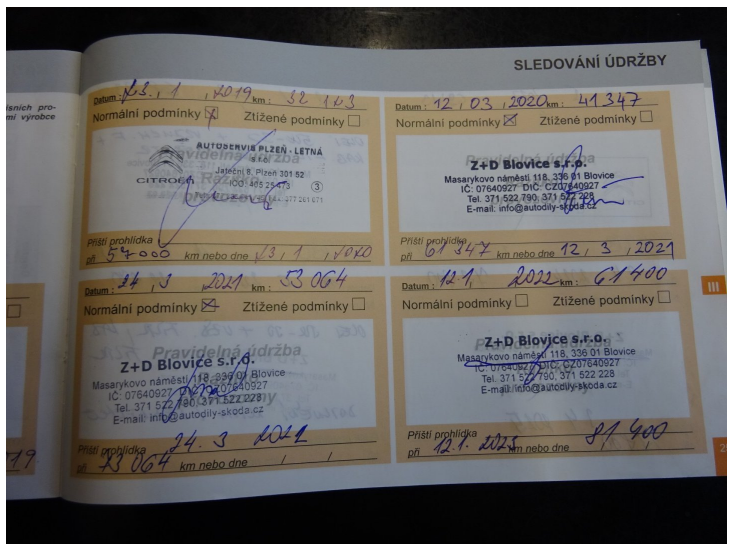 SLEDOVÁNÍ ÚDRŽBY
isních pro-
mi výrobce
Datum : 23., 1 , 2019 km : 32 123
Normální podmínky ☒ Ztížené podmínky ☐
Pravidelná údržba
AUTOSERVIS PLZEŇ - LETNÁ
s.r.o.
Jateční 8, Plzeň 301 52
CITROËN
3
Příští prohlídka
při 57000 km nebo dne 23, 1 , 2020
Datum : 12, 03, 2020 km : 41 347
Normální podmínky ☒ Ztížené podmínky ☐
Pravidelná údržba
Z+D Blovice s.r.o.
Masarykovo náměstí 118, 336 01 Blovice
IČ: 07640927 DIČ: CZ07640927
Tel. 371 522 790, 371 522 228
E-mail: info@autodily-skoda.cz
Příští prohlídka
při 61 347 km nebo dne 12, 3, 2021
Datum : 24, 3 2021 km : 53 064
Normální podmínky ☒ Ztížené podmínky ☐
Pravidelná údržba
Z+D Blovice s.r.o.
Masarykovo náměstí 118, 336 01 Blovice
IČ: 07640927 DIČ: CZ07640927
Tel. 371 522 790, 371 522 228
E-mail: info@autodily-skoda.cz
Příští prohlídka 24. 3 2022
při 73 064 km nebo dne / /
Datum : 12.1, 2022 km : 61400
Normální podmínky ☐ Ztížené podmínky ☐
Z+D Blovice s.r.o.
Masarykovo náměstí 118, 336 01 Blovice
IČ: 07640927 DIČ: CZ07640927
Tel. 371 522 790, 371 522 228
E-mail: info@autodily-skoda.cz
Příští prohlídka
při 12.1. 2023 km nebo dne 81 400
III
19.
2